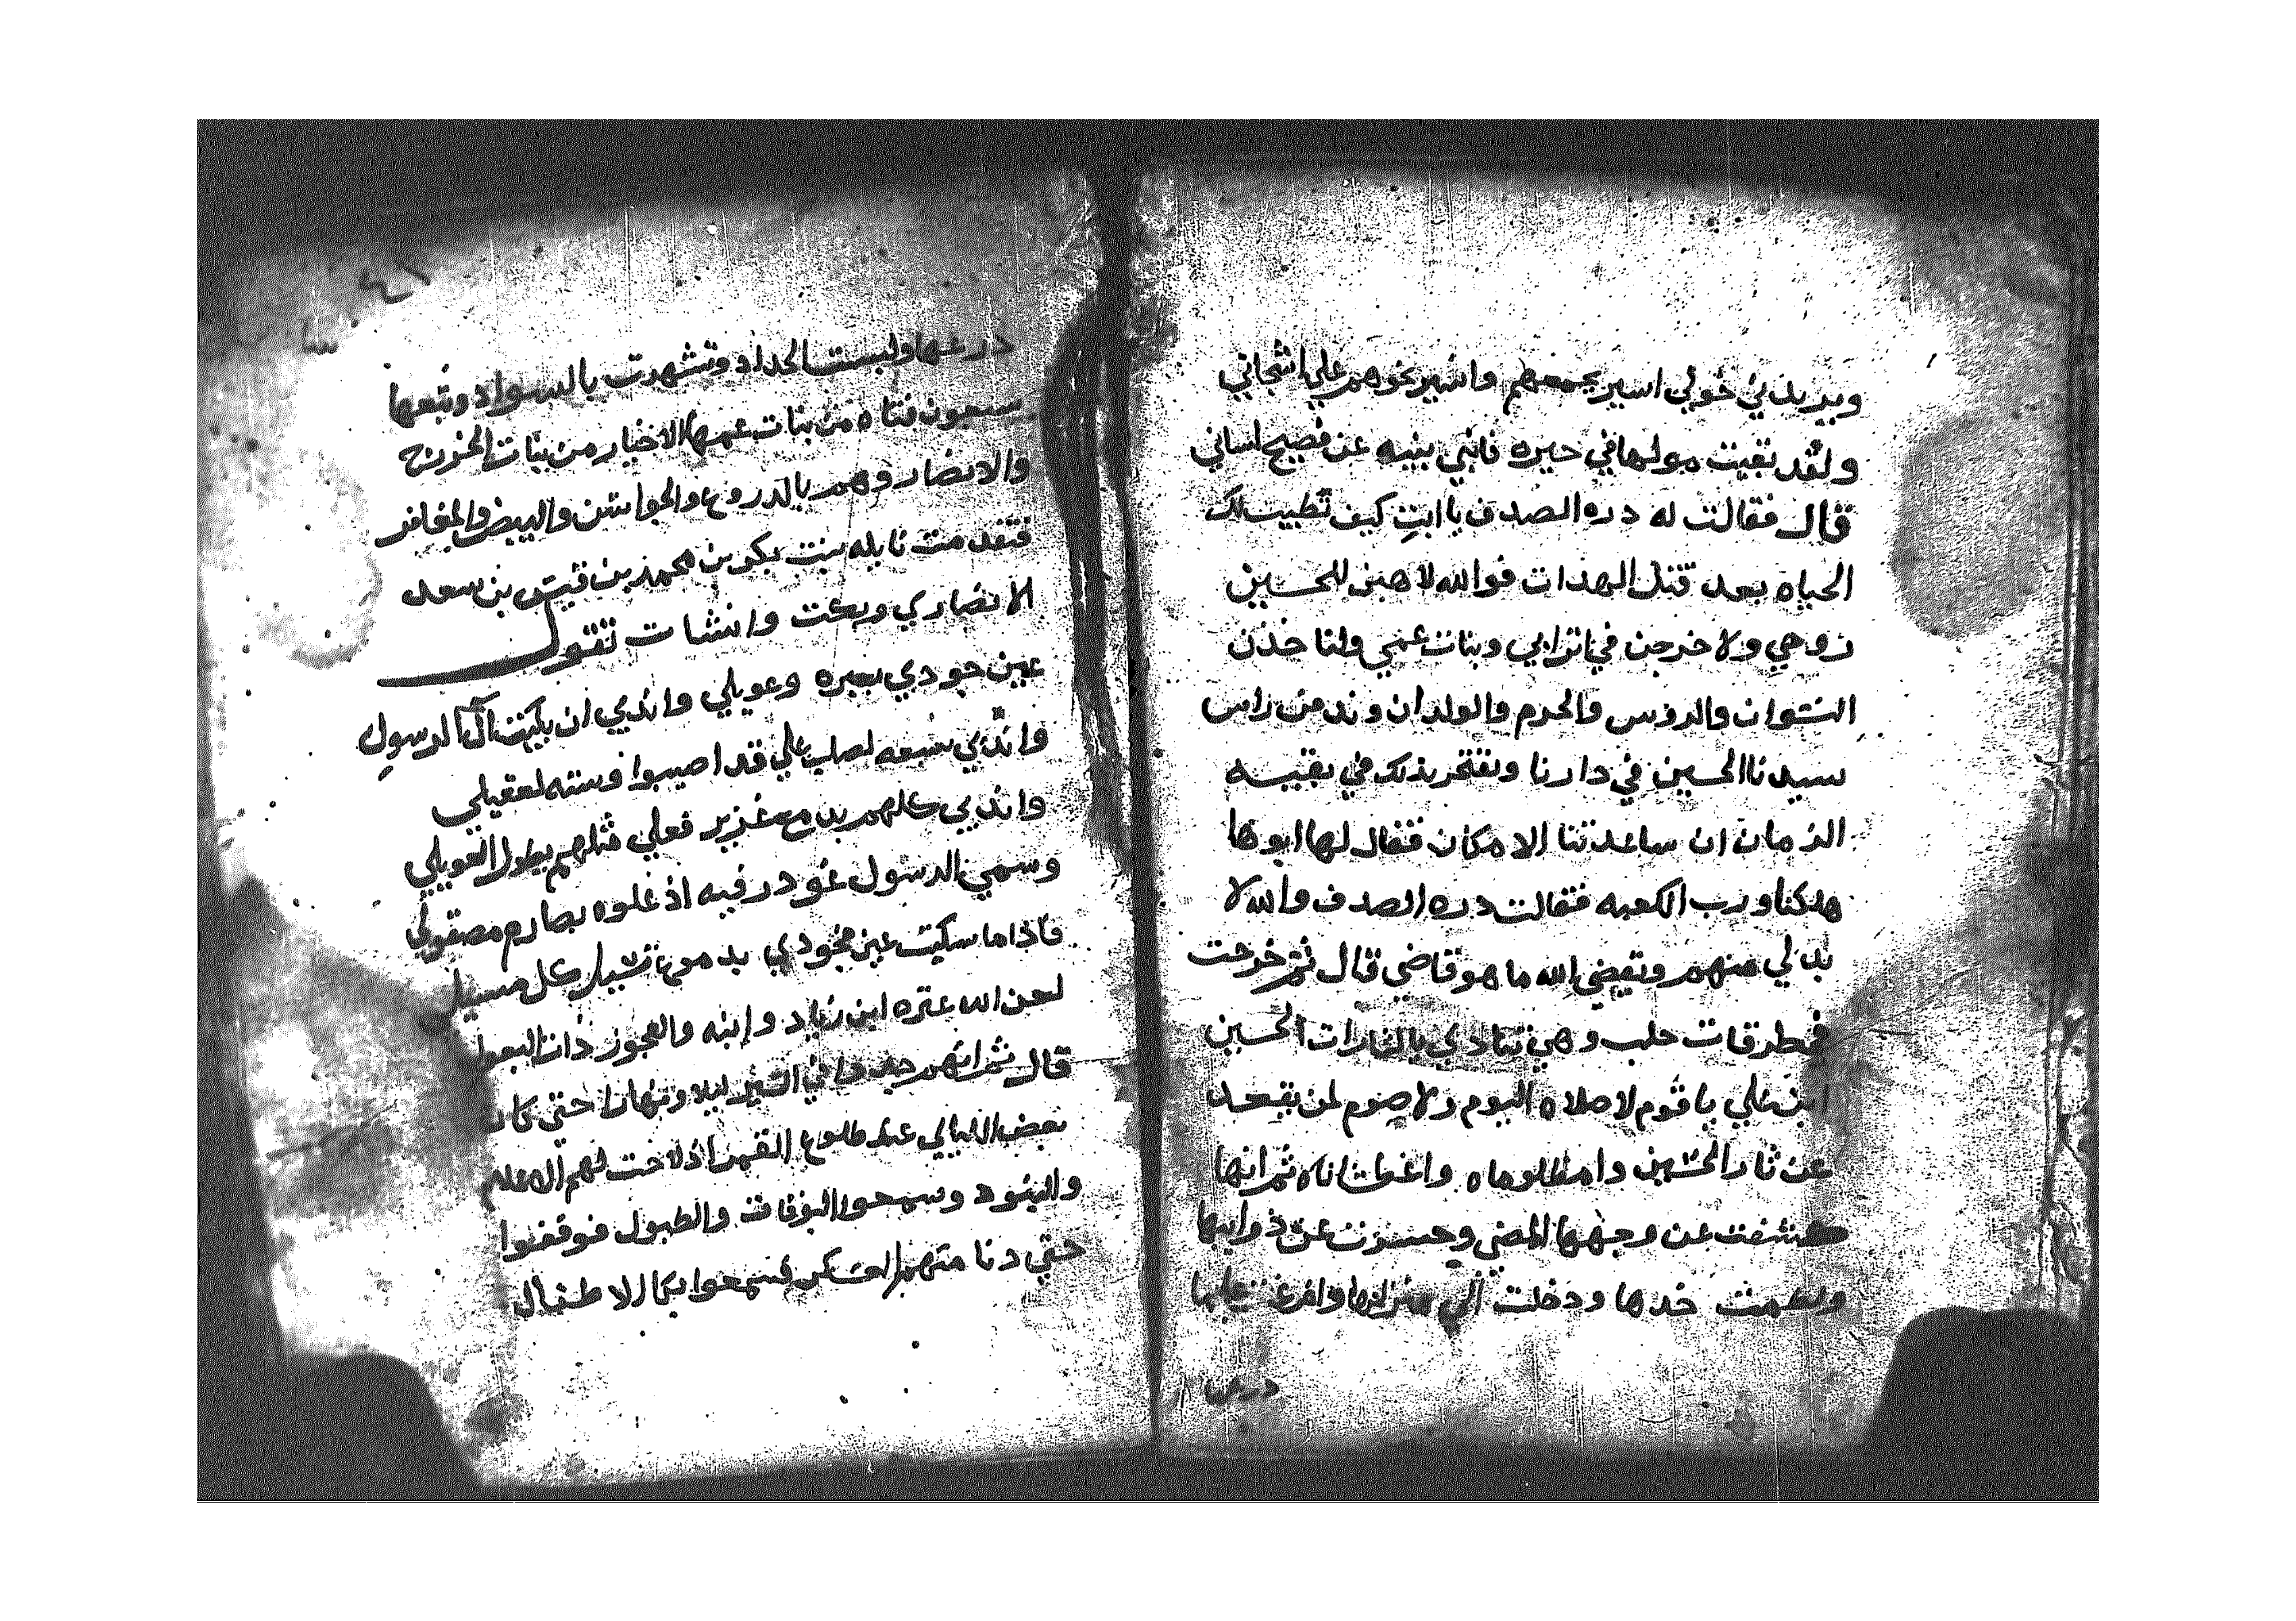 ويزيدني خولي اسير بجمعهم واسير نحوهم علي اشجاني
ولقد بقيت مولها في حيره فانبي ينيه عن فصيح لساني
قال فقالت له دره الصدف يا ابتِ كيف تطيب لك
الحياه بعد قتل الهدات فوالله لاهبن للحسين
روحي ولاخرجن في اترابي وبنات عمي ولناخذن
النسوان والروس والحرم والولدان وندفن راس
سيدنا الحسين في دارنا ونفتخر بذلك في بقيه
الزمان ان ساعدتنا الامكان فقال لها ابوها
هلكنا ورب الكعبه فقالت دره الصدف والله لا
بد لي منهم ويقضي الله ما هو قاضي قال ثم خرجت
في طرقات حلب وهي تنادي يالثارات الحسين
ابن علي يا قوم لا صلاه اليوم ولا صوم لمن يقعد
عن ثار الحسين وامظلوماه واعطشاناه ثم انها
كشفت عن وجهها المضي وحسرت عن ذوايبها
ولطمت خدها ودخلت الي منزلها وافرغت عليها
درعها
درعها ولبست الحداد وتشهرت بالسواد وتبعها
سبعون فتاه من بنات عمها الاخيار من بنات الخزرج
والانصار وهم بالدروع والجواشن والبيض والمغافر
فتقدمت نايله بنت بكر بن محمد بن قيس بن سعد
الانصاري وبكت وانشات تقول
عين جودي بعبره وعويلي واندبي ان بكيت آل الرسول
واندبي سبعه لصلب علي قد اصيبوا وسته لعقيلي
واندبي كلهم فعلي قتلهم بطول العويلي
وسمي الرسول غودر فيه اذ علوه بصارم مصقولي
فاذا ما بكيت عين فجودي بدموع تسيل كل مسيل
لعن الله عتره ابن زياد وابنه والعجوز ذات البعول
قال ثم انهم جدوا في السير ليلا ونهارا حتي كان
بعض الليالي عند طلوع القمر اذ لاحت لهم الاعلام
والبنود وسمعوا البوقات والطبول فوقفوا
حتي دنا منهم العسكر فسمعوا بكا الاطفال